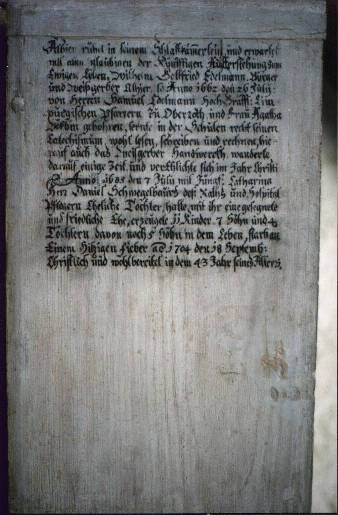 Alhier ruhet in seinem Schlaffkämerlein, und erwartet
mit allen glaubigen der künfftigen Aufferstehung zum
Ewigen Leben, Wilhelm Gottfried Edelmann, Bürger
und Weißgerber Alhier, so Anno 1662 den 26 Julij
von Herren Samuel Edelmann Hoch Gräffl: Lim
purgischen Pfarrern zu Oberroth, und Frau Agatha
gebohren, lernte in der Schulen recht seinen
Catechismum, wohl lesen, schreiben und rechnen, hie-
rauf auch das Weisgerber Handwerch, wanderte
darauf einige Zeit, und verehlichte sich im Jahr Christi
Anno 1685 den 7 Julij mit Jungf: Catharina
Herr Daniel des Raths und Hospital
Pflegern Eheliche Tochter, hatte mit ihr eine gesegnete
und friedliche Ehe, erzeugete 11 Kinder 7 Söhn und 4
Töchtern davon noch 5 Söhn in dem Leben, starb an
Einem Hitzigen Fieber ao 1704 den 18 Septemb:
Christlich und wohlbereitet in dem 43 Jahr seines Alters.